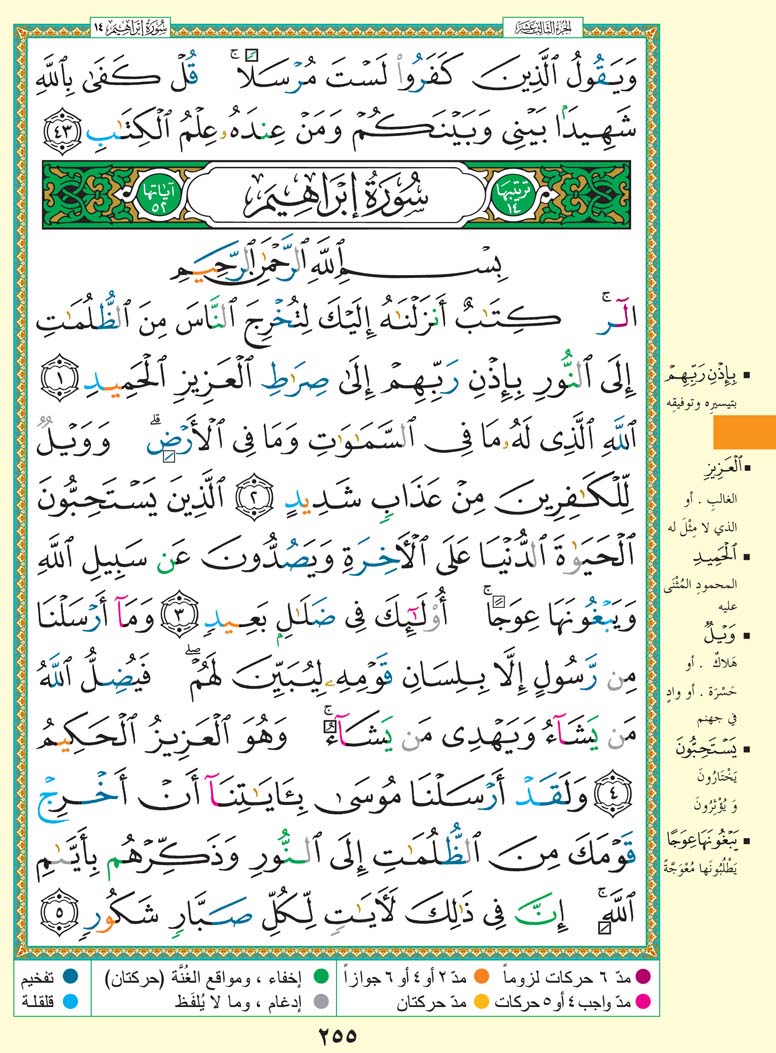 الجزء الثالث عشر
سُورَةُ إِبْرَاهِيمَ ١٤
وَيَقُولُ ٱلَّذِينَ كَفَرُوا۟ لَسْتَ مُرْسَلًا ۚ قُلْ كَفَىٰ بِٱللَّهِ
شَهِيدًۢا بَيْنِى وَبَيْنَكُمْ وَمَنْ عِندَهُۥ عِلْمُ ٱلْكِتَٰبِ ٤٣
ترتيبها ١٤ سُورَةُ إِبْرَاهِيمَ آياتها ٥٢
بِسْمِ ٱللَّهِ ٱلرَّحْمَٰنِ ٱلرَّحِيمِ
الٓر ۚ كِتَٰبٌ أَنزَلْنَٰهُ إِلَيْكَ لِتُخْرِجَ ٱلنَّاسَ مِنَ ٱلظُّلُمَٰتِ
إِلَى ٱلنُّورِ بِإِذْنِ رَبِّهِمْ إِلَىٰ صِرَٰطِ ٱلْعَزِيزِ ٱلْحَمِيدِ ١
ٱللَّهِ ٱلَّذِى لَهُۥ مَا فِى ٱلسَّمَٰوَٰتِ وَمَا فِى ٱلْأَرْضِ ۗ وَوَيْلٌ
لِّلْكَٰفِرِينَ مِنْ عَذَابٍ شَدِيدٍ ٢ ٱلَّذِينَ يَسْتَحِبُّونَ
ٱلْحَيَوٰةَ ٱلدُّنْيَا عَلَى ٱلْأَخِرَةِ وَيَصُدُّونَ عَن سَبِيلِ ٱللَّهِ
وَيَبْغُونَهَا عِوَجًا ۚ أُو۟لَٰٓئِكَ فِى ضَلَٰلٍۭ بَعِيدٍ ٣ وَمَآ أَرْسَلْنَا
مِن رَّسُولٍ إِلَّا بِلِسَانِ قَوْمِهِۦ لِيُبَيِّنَ لَهُمْ ۖ فَيُضِلُّ ٱللَّهُ
مَن يَشَآءُ وَيَهْدِى مَن يَشَآءُ ۚ وَهُوَ ٱلْعَزِيزُ ٱلْحَكِيمُ
٤ وَلَقَدْ أَرْسَلْنَا مُوسَىٰ بِـَٔايَٰتِنَآ أَنْ أَخْرِجْ
قَوْمَكَ مِنَ ٱلظُّلُمَٰتِ إِلَى ٱلنُّورِ وَذَكِّرْهُم بِأَيَّىٰمِ
ٱللَّهِ ۚ إِنَّ فِى ذَٰلِكَ لَأَيَٰتٍ لِّكُلِّ صَبَّارٍ شَكُورٍ ٥
بِإِذْنِ رَبِّهِمْ
بتيسيره وتوفيقه
ٱلْعَزِيزِ
الغالبِ . أو
الذي لا مِثْلَ له
ٱلْحَمِيدِ
المحمودِ المُثْنَى
عليه
وَيْلٌ
هَلاكٌ . أو
حَسْرَة . أو وادٍ
في جهنم
يَسْتَحِبُّونَ
يَخْتَارُونَ
وَ يُؤْثِرُونَ
يَبْغُونَهَا عِوَجًا
يَطْلُبُونَها مُعْوَجَّةً
مدّ ٦ حركات لزوماً
مدّ ٢ أو ٤ أو ٦ جوازاً
إخفاء ، ومواقع الغُنَّة (حركتان)
تفخيم
مدّ واجب ٤ أو ٥ حركات
مدّ حركتان
إدغام ، وما لا يُلفَظ
قلقلة
٢٥٥